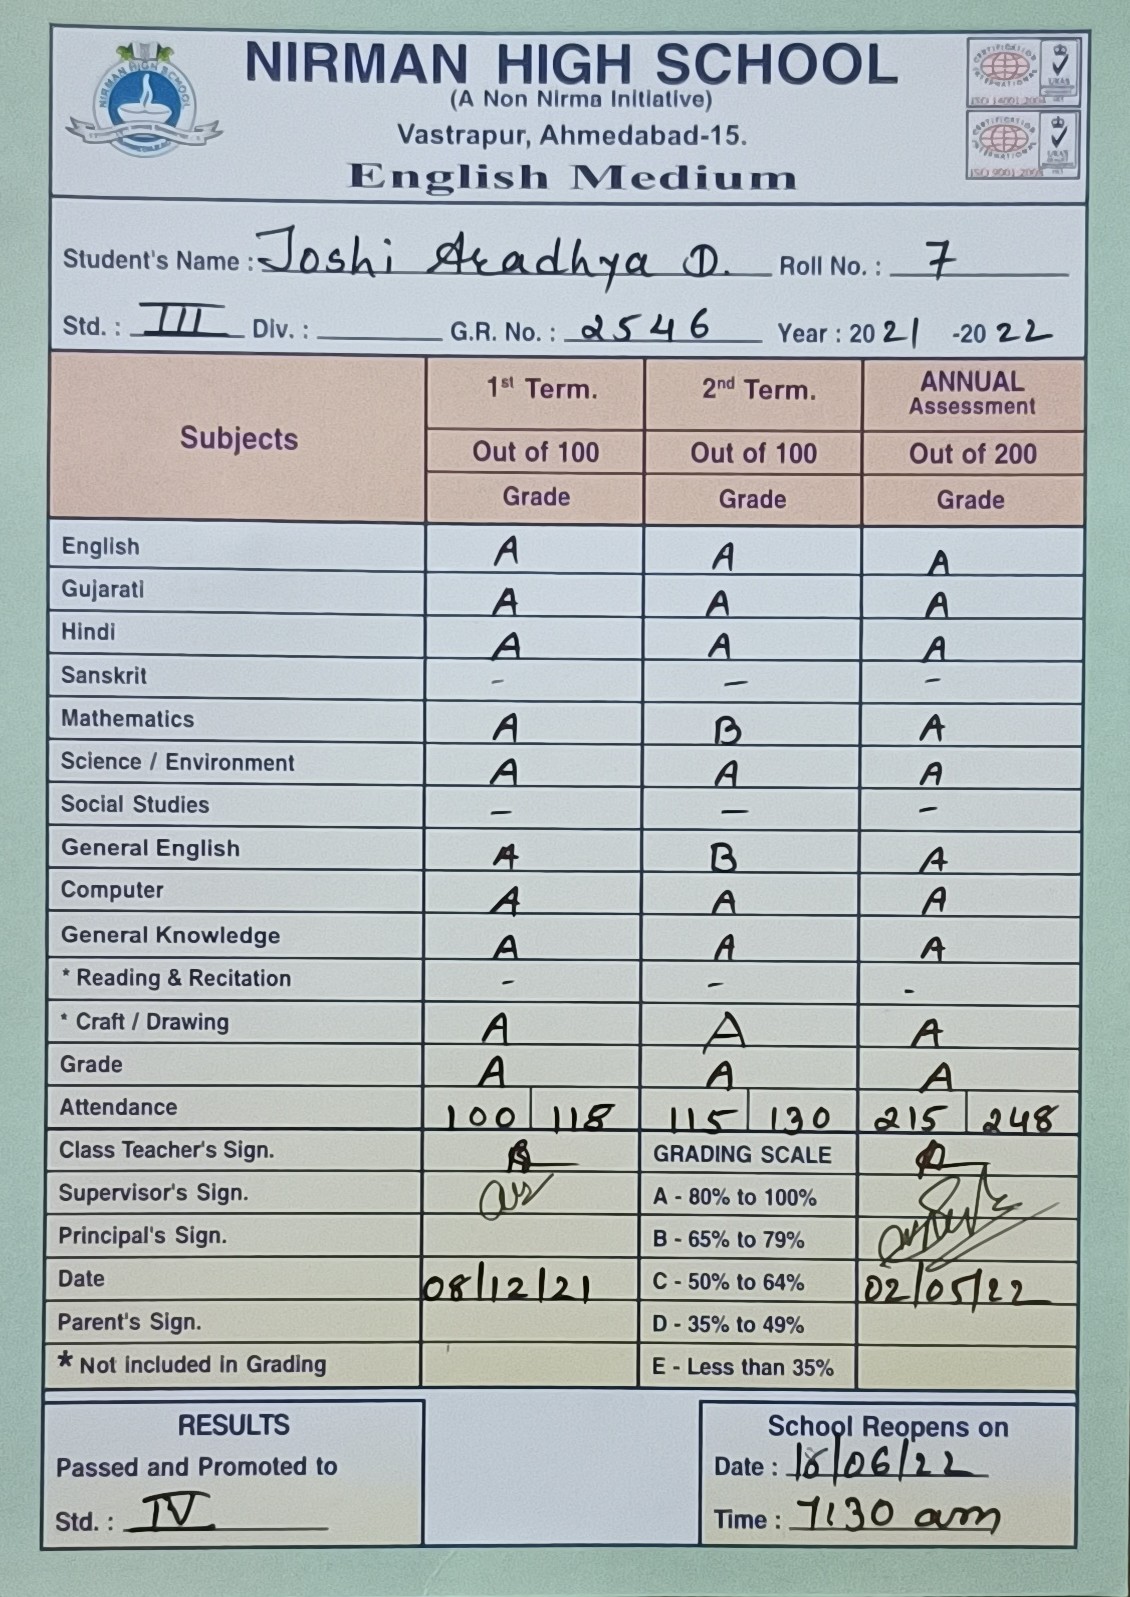 NIRMAN HIGH SCHOOL
(A Non Nirma Initiative)
Vastrapur, Ahmedabad-15.
English Medium
NIRMAN HIGH SCHOOL
CERTIFICATION INTERNATIONAL
UKAS
ISO 14001:2004
CERTIFICATION INTERNATIONAL
UKAS
ISO 9001:2008
Student's Name : Joshi Aradhya D. Roll No. : 7
Std. : III Div. : G.R. No. : 2546 Year : 2021 -2022
Subjects 1st Term. 2nd Term. ANNUAL Assessment
Out of 100 Out of 100 Out of 200
Grade Grade Grade
English A A A
Gujarati A A A
Hindi A A A
Sanskrit - - -
Mathematics A B A
Science / Environment A A A
Social Studies - - -
General English A B A
Computer A A A
General Knowledge A A A
* Reading & Recitation - - -
* Craft / Drawing A A A
Grade A A A
Attendance 100 118 115 130 215 248
Class Teacher's Sign. GRADING SCALE
Supervisor's Sign. A - 80% to 100%
Principal's Sign. B - 65% to 79%
Date 08/12/21 C - 50% to 64% 02/05/22
Parent's Sign. D - 35% to 49%
* Not included in Grading E - Less than 35%
RESULTS
Passed and Promoted to
Std. : IV
School Reopens on
Date : /06/22
Time : 7:30 am